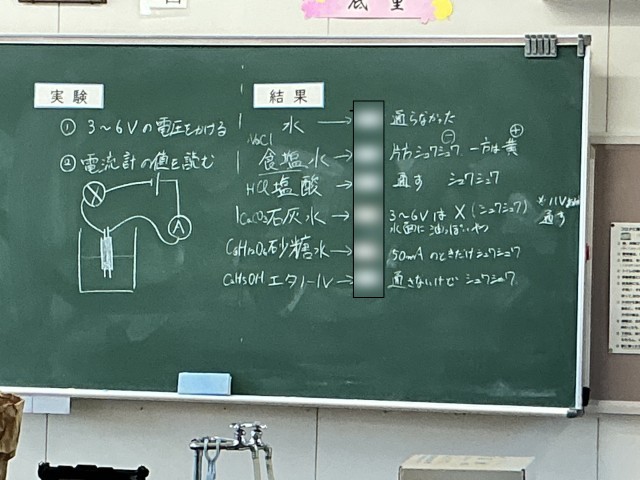 実験
① 3～6Vの電圧をかける
② 電流計の値を読む
X
A
結果
水 → 通らなかった
NaCl
食塩水 → 片方シュワシュワ 一方は黄
⊖ ⊕
HCl 塩酸 → 通す シュワシュワ
石灰水 → 3～6Vは X (シュワシュワ)
水面に油っぽいやつ
通す
C₆H₁₂O₆ 砂糖水 → 50mAのときだけシュワシュワ
C₂H₅OH エタノール → 通さないけどシュワシュワ